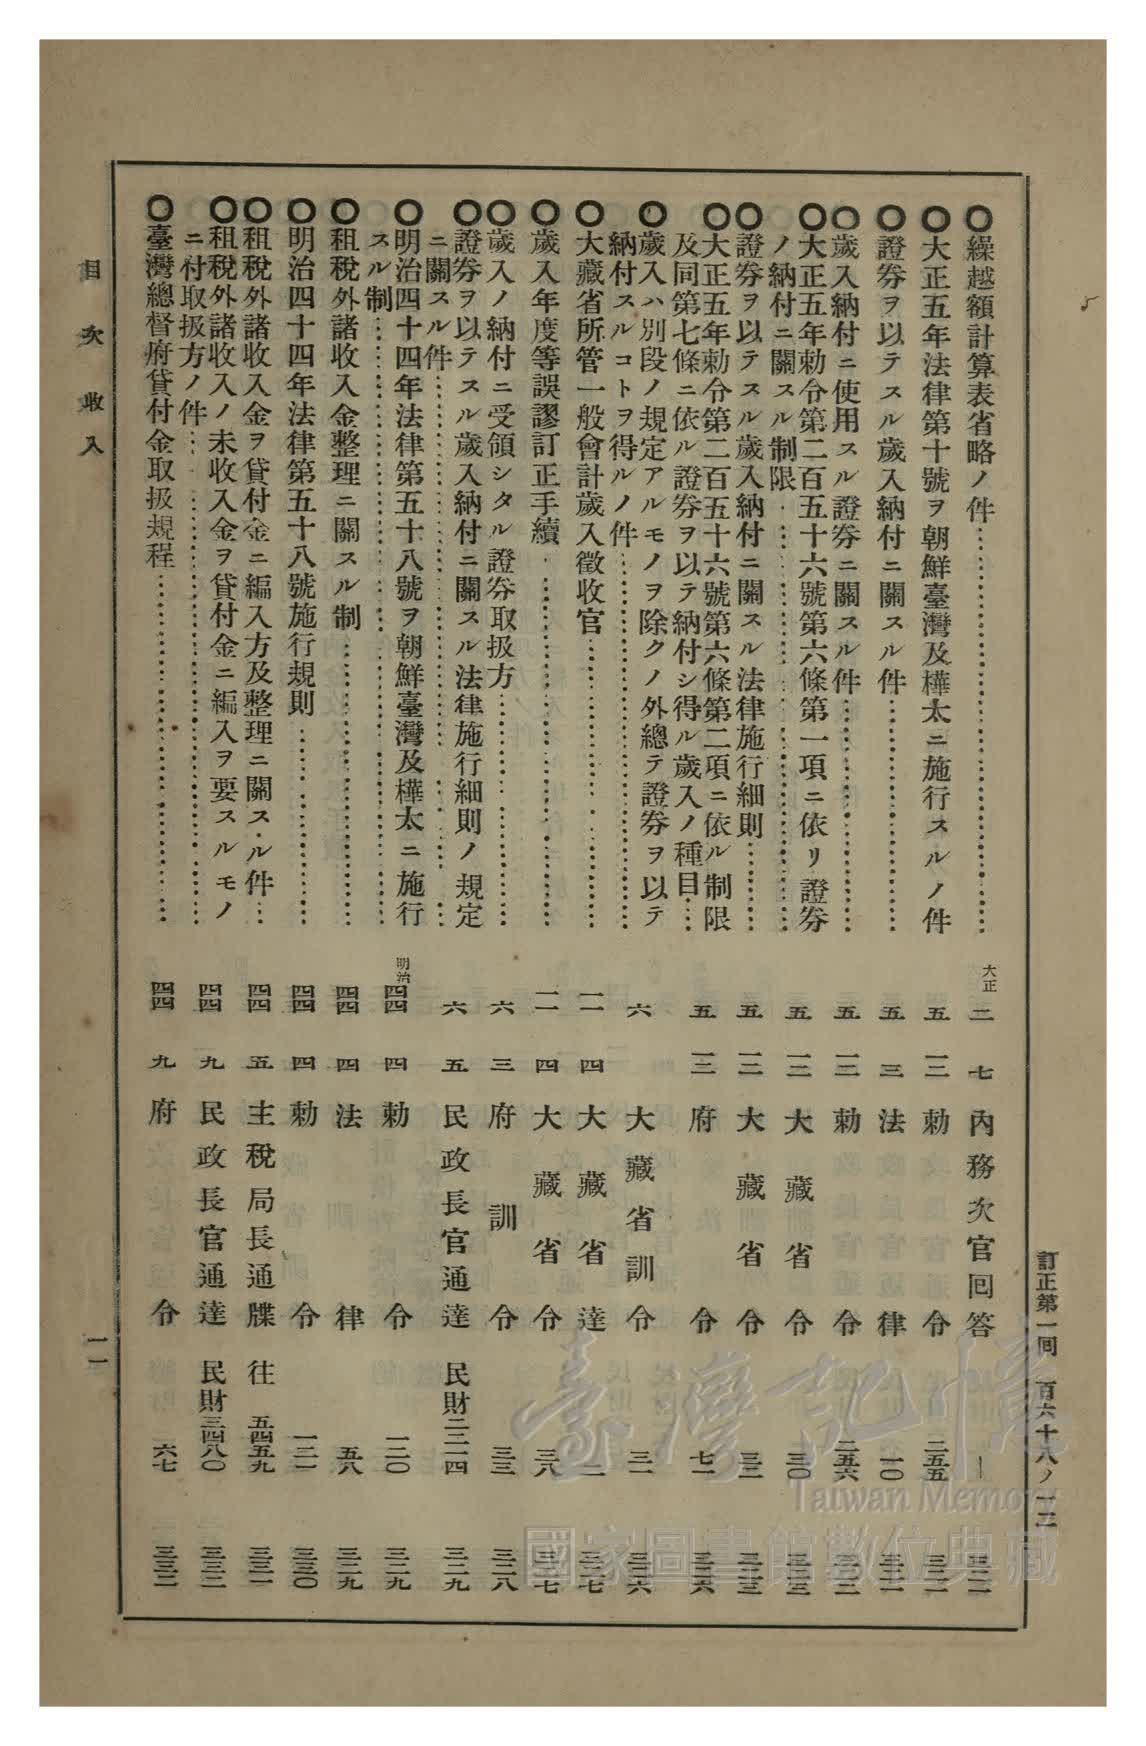 訂正第一回 百六十八ノ一二
○繰越額計算表省略ノ件 大正二 七 內務次官回答 ―
○大正五年法律第十號ヲ朝鮮臺灣及樺太ニ施行スルノ件 五 一二 勅令 二五五
○證券ヲ以テスル歲入納付ニ關スル件 五 三 法律 一〇
○歲入納付ニ使用スル證券ニ關スル件 五 一二 勅令 二五六
○大正五年勅令第二百五十六號第六條第一項ニ依リ證券
ノ納付ニ關スル制限 五 一二 大藏省令 三〇
○證券ヲ以テスル歲入納付ニ關スル法律施行細則 五 一二 大藏省令
○大正五年勅令第二百五十六號第六條第二項ニ依ル制限
及同第七條ニ依ル證券ヲ以テ納付シ得ル歲入ノ種目 五 一二 府令 七一
○歲入ハ別段ノ規定アルモノヲ除クノ外總テ證券ヲ以テ
納付スルコトヲ得ルノ件 六 大藏省訓令 三一
○大藏省所管一般會計歲入徵收官 一一 四 大藏省達
○歲入年度等誤謬訂正手續 一一 四 大藏省令 三八
○歲入ノ納付ニ受領シタル證券取扱方 六 三 府訓令 三三 三二八
○證券ヲ以テスル歲入納付ニ關スル法律施行細則ノ規定
ニ關スル件 六 五 民政長官通達 民財二二一四 三二九
○明治四十四年法律第五十八號ヲ朝鮮臺灣及樺太ニ施行
スル制 明治四四 四 勅令 一二〇 三二九
○租稅外諸收入金整理ニ關スル制 四四 四 法律 五八 三二九
○明治四十四年法律第五十八號施行規則 四四 四 勅令 一二一 三三〇
○租稅外諸收入金ヲ貸付金ニ編入方及整理ニ關スル件 四四 五 主稅局長通牒 往五四五九 三三一
○租稅外諸收入ノ未收入金ヲ貸付金ニ編入ヲ要スルモノ
ニ付取扱方ノ件 四四 九 民政長官通達 民財三四八〇 三三二
○臺灣總督府貸付金取扱規程 四四 九 府令 六七 三三二
目次 收入
一一
臺灣記憶
Taiwan Memory
國家圖書館數位典藏